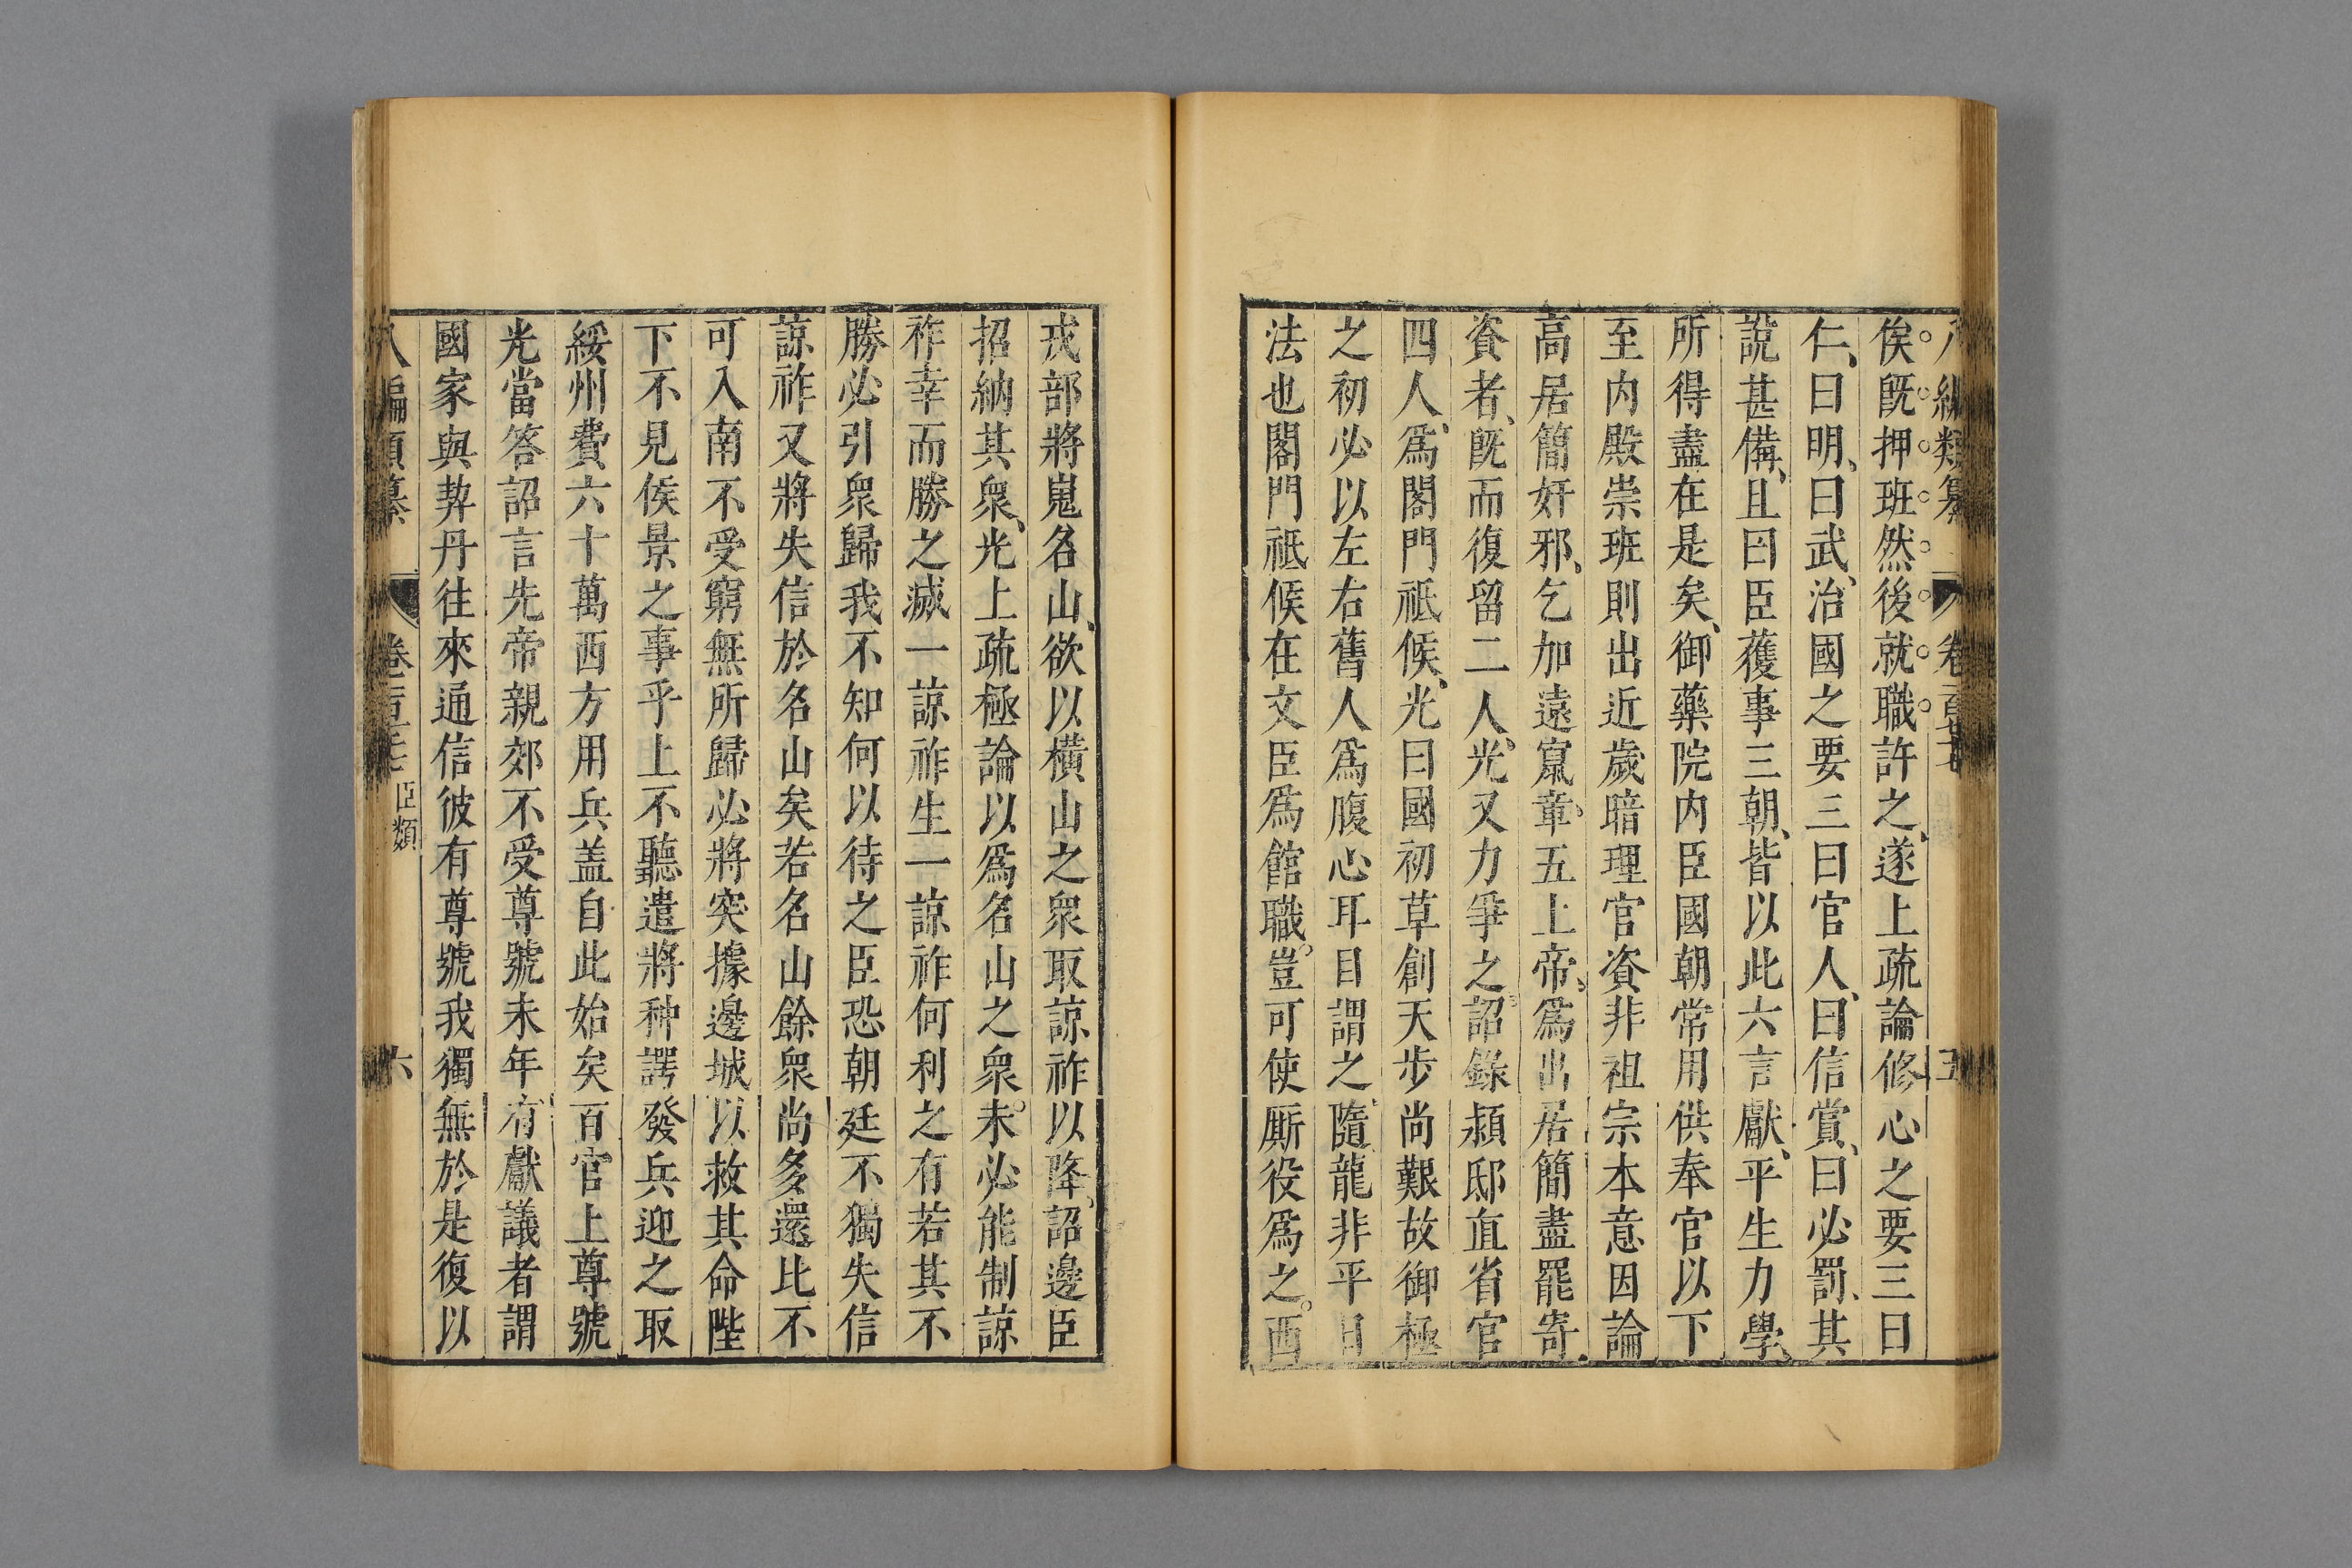 俟旣押班然後就職許之遂上疏論修心之要三曰
仁曰明曰武治國之要三曰官人曰信賞曰必罰其
說甚備且曰臣獲事三朝皆以此六言獻平生力學
所得盡在是矣御藥院内臣國朝常用供奉官以下
至内殿崇班則出近歲暗理官資非祖宗本意因論
高居簡奸邪乞加遠竄章五上帝爲出居簡盡罷寄
資者旣而復留二人光又力爭之詔錄潁邸直省官
四人爲閤門祇候光曰國初草創天步尚艱故御極
之初必以左右舊人爲腹心耳目謂之隨龍非平日
法也閤門祇候在文臣爲館職豈可使厮役爲之西
戎部將嵬名山欲以橫山之衆取諒祚以降詔邊臣
招納其衆光上疏極論以爲名山之衆未必能制諒
祚幸而勝之滅一諒祚生一諒祚何利之有若其不
勝必引衆歸我不知何以待之臣恐朝廷不獨失信
諒祚又將失信於名山矣若名山餘衆尚多還比不
可入南不受窮無所歸必將突據邊城以救其命陛
下不見侯景之事乎上不聽遣將种諤發兵迎之取
綏州費六十萬西方用兵盖自此始矣百官上尊號
光當答詔言先帝親郊不受尊號末年有獻議者謂
國家與契丹往來通信彼有尊號我獨無於是復以
八編類纂
臣類
六